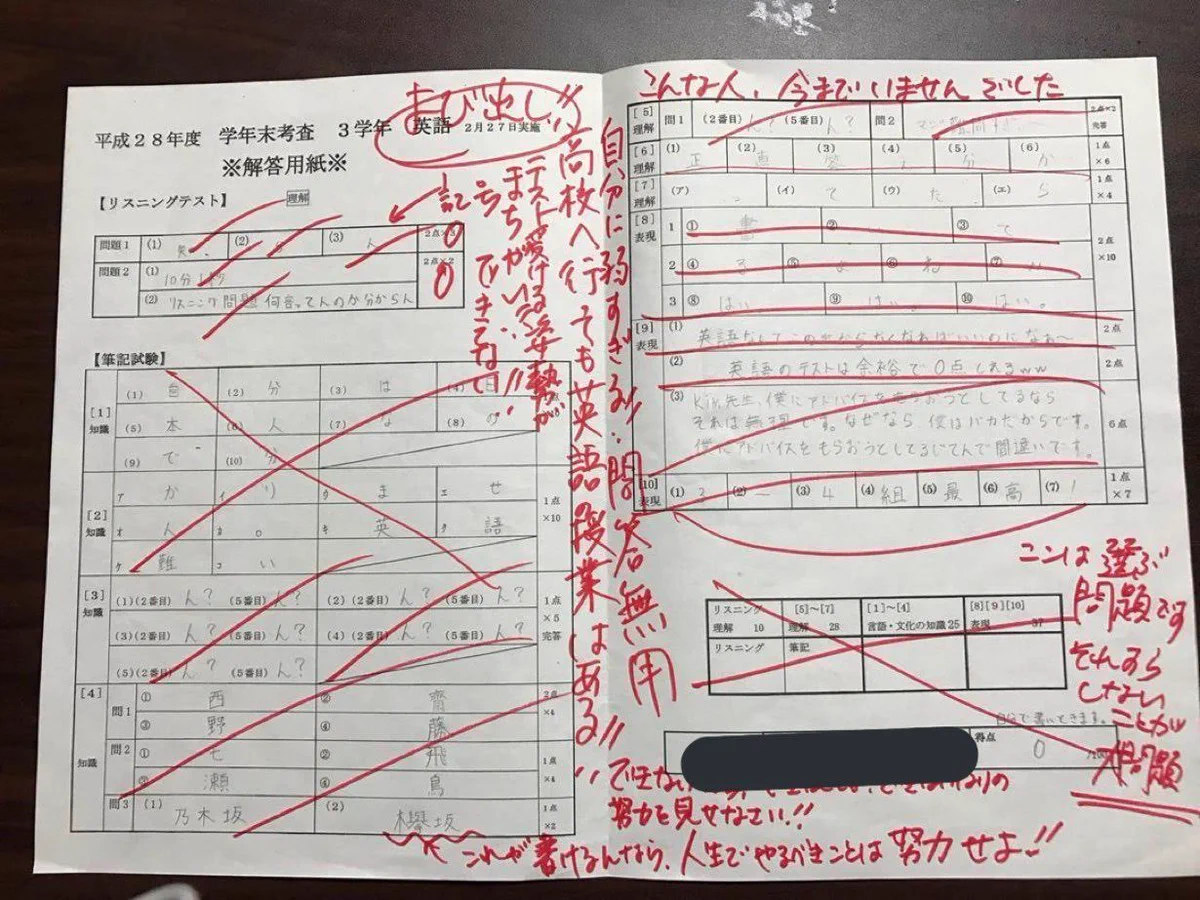 よび出し!!
平成28年度 学年末考査 3学年 英語 2月27日実施
※解答用紙※
【リスニングテスト】 理解
問題1 (1) (2) (3) 人 2点×3
0
問題2 (1) 10分 2点×2
(2) リスニング問題何言ってんのか分からん
0
記号
まちがい!!
テストを受ける姿勢が
できてない!!
高校へ行っても英語の授業はある!!
自分に弱すぎる!! 問答無用
【筆記試験】
[1] 知識
(1) 自 (2) 分 (3) は (4) 日
(5) 本 (6) 人 (7) な (8) の
(9) で (10) 分
[2] 知識
ア か イ り ウ ま エ せ 1点×10
オ 人 カ 。 キ 英 ク 語
ケ 難 コ い
[3] 知識
(1)(2番目) ん? (5番目) ん? (2)(2番目) ん? (5番目) ん? 1点×5 完答
(3)(2番目) ん? (5番目) ん? (4)(2番目) ん? (5番目) ん?
(5)(2番目) ん? (5番目) ん?
[4] 知識
問1 ① 西 ② 齋 2点×4
③ 野 ④ 藤
問2 ① 七 ② 飛 1点×4
③ 瀬 ④ 鳥
問3 (1) 乃木坂 (2) 欅坂 1点×2
これが書けるんなら、人生でやるべきことは努力せよ!!
こんな人、今までいませんでした
[5] 理解 問1 (2番目) ん? (5番目) ん? 問2 2点×2 完答
[6] 理解 (1) 正 (2) 直 (3) 答 (4) (5) 分 (6) か 1点×6
[7] 理解 (ア) (イ) て (ウ) た (エ) ら 1点×4
[8] 表現
1 ① 書 ② ③ て 2点×10
2 ④ る ⑤ よ ⑥ ね ⑦
3 ⑧ はい ⑨ はい ⑩ はい。
[9] 表現
(1) 英語なんてこの世からなくなればいいのになあ〜 2点
(2) 英語のテストは余裕で0点とれるww 2点
(3) 先生、僕にアドバイスをもらおうとしてるなら
それは無理です。なぜなら 僕はバカだからです。
僕にアドバイスをもらおうとしてるじてんで間違いです。 6点
[10] 表現 (1) 3 (2) − (3) 4 (4) 組 (5) 最 (6) 高 (7) ! 1点×7
ココは選ぶ
問題です
それすら
しない
ことが
大問題
リスニング 理解 10 [5]〜[7] 理解 28 [1]〜[4] 言語・文化の知識 25 [8][9][10] 表現 37
リスニング 筆記
自分で書いときます。
得点 0 /100
できない
なりの
努力を見せなさい!!